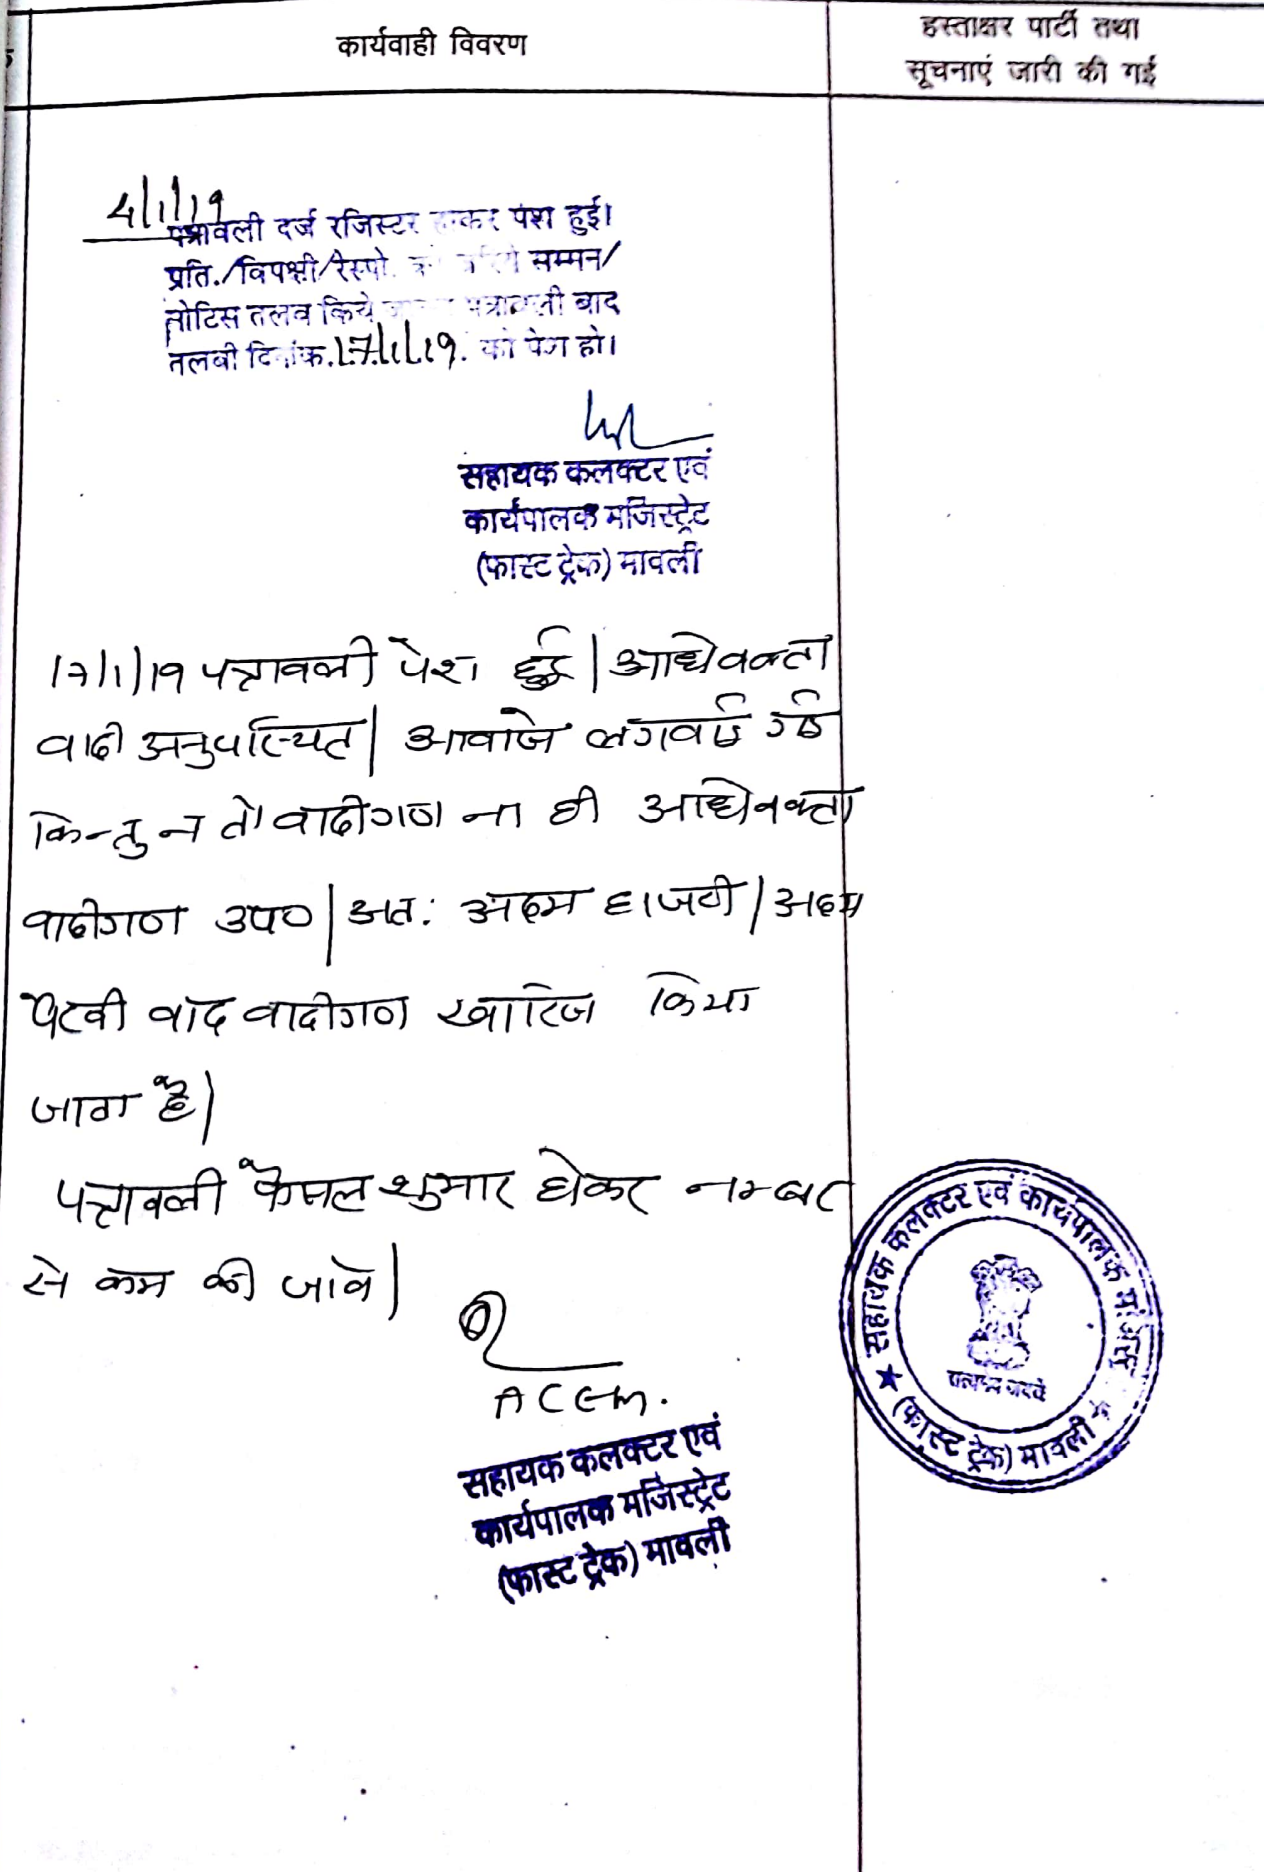 कार्यवाही विवरण
हस्ताक्षर पार्टी तथा
सूचनाएं जारी की गई
4/1/19
पत्रावली दर्ज रजिस्टर होकर पेश हुई।
प्रति./विपक्षी/रेस्पो. को जरिये सम्मन/
नोटिस तलब किये पत्रावली बाद
तलबी दिनांक.17/1/19. को पेश हो।
सहायक कलक्टर एवं
कार्यपालक मजिस्ट्रेट
(फास्ट ट्रेक) मावली
17/1/19 पत्रावली पेश हुई| अधिवक्ता
वादी अनुपस्थित| आवाजे लगवाई गई
किन्तु न तो वादीगण ना ही अधिवक्ता
वादीगण उप०| अत: अदम हाजरी/अदम
पैरवी वाद वादीगण खारिज किया
जाता है|
पत्रावली फैसल शुमार होकर नम्बर
से कम की जावे|
ACEM.
सहायक कलक्टर एवं
कार्यपालक मजिस्ट्रेट
(फास्ट ट्रेक) मावली
सहायक कलक्टर एवं कार्यपालक
सत्यमेव जयते
(फास्ट ट्रेक) मावली